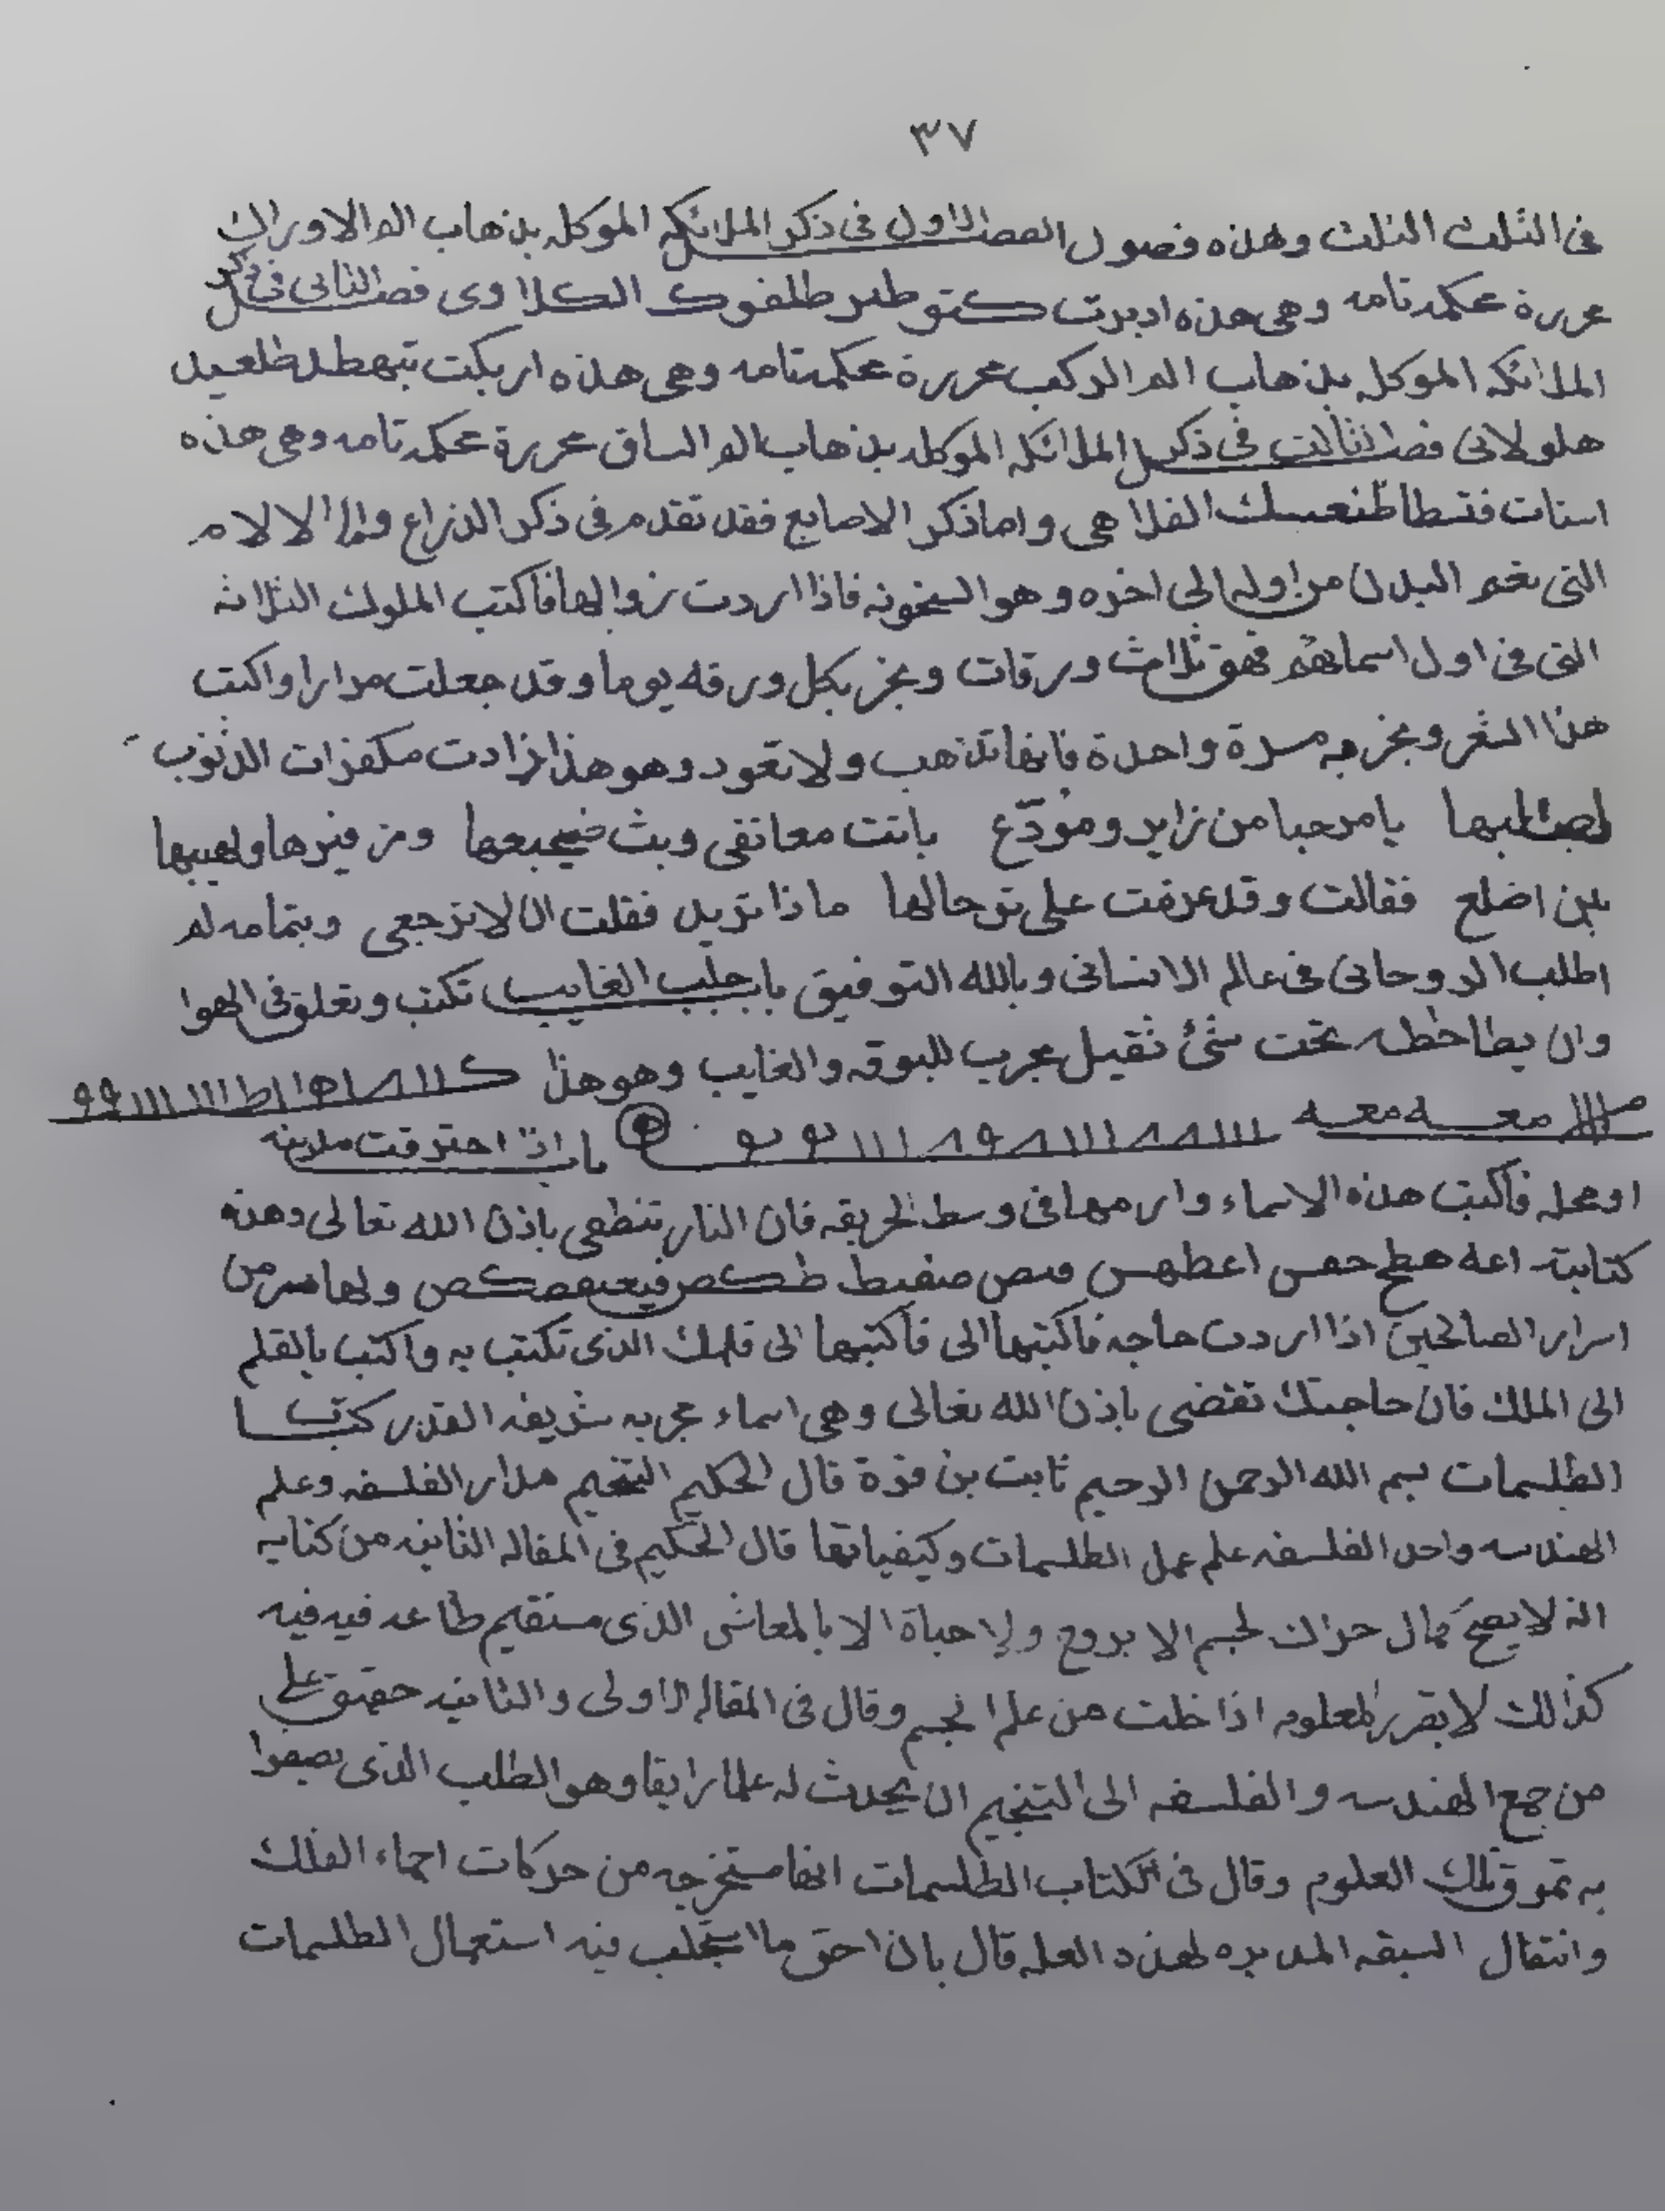 ٣٧
فى الثلث الثلث وهذه فصول الفصل الاول فى ذكر الملائكه الموكله بذهاب الم الاوراك
عزيزة محكمه تامه وهى هذه ادبرت كتو طلفوك الكلاوى فصل الثانى فى ذكر
الملائكه الموكله بذهاب الم الركب عزيزة محكمه تامه وهى هذه اربكت
هلولاى فصل الثالث فى ذكر الملائكه الموكله بذهاب الم الساق عزيزة محكمه تامه وهى هذه
اسات الفلاهى واما ذكر الاصابع فقد تقدم فى ذكر الذراع واما الالام
التى تعم البدن من اوله الى اخره وهو السخونه فاذا اردت زوالها فاكتب الملوك الثلاثه
التى فى اول اسمائهم فهى ثلاث ورقات وبخر بكل ورقه يوما وقد جعلت مرارا واكتب
هذا الشعر وبخر به مرة واحدة فانها تذهب ولا تعود وهو هذا زادت مكفرات الذنوب
لصبها يا مرحبا من زاير ومودع باتت معانقى وبت ضجيعها ولهيبها
بين اضلع فقالت وقد عزمت على ترحالها ماذا تريد فقلت ان لا ترجعى وبتمامه لم
اطلب الروحانى فى عالم الانسانى وبالله التوفيق باب جلب الغايب تكتب وتعلق فى الهوا
وان يطا تحت شئ ثقيل مجرب للبوقه والغايب وهو هذا
معه معه باب اذا احترقت مدينه
او محله فاكتب هذه الاسماء وارمها فى وسط الحريقه فان النار تنطفى باذن الله تعالى وهذه
كتابته اعه هطح اعطهس ولها سر من
اسرار الصالحين اذا اردت حاجه فاكتبها الى فاكتبها الى قلمك الذى تكتب به واكتب بالقلم
الى الملك فان حاجتك تقضى باذن الله تعالى وهى اسماء مجربه شريفه القدر كتاب
الطلسمات بسم الله الرحمن الرحيم ثابت بن قرة قال الحكيم التنجيم مدار الفلسفه وعلم
الهندسه واحد الفلسفه علم عمل الطلسمات وكيفياتها قال الحكيم فى المقاله الثانيه من كتابه
انه لا يصح كمال حراك لجسم الا بروح ولا حياة الا بالمعاش الذى مستقيم طاعه فيه فيه
كذالك لا بقرر المعلومه اذا خلت من علم النجم وقال فى المقاله الاولى والثانيه حقيق على
من جمع الهندسه والفلسفه الى التنجيم ان يحدث له علما رايقا وهو الطلب الذى
به تلك العلوم وقال فى الكتاب الطلسمات انها مستخرجه من حركات اسماء الفلك
وانتقال السبقه المديره لهذه العله قال بان احق ما استجلب فيه استعمال الطلسمات